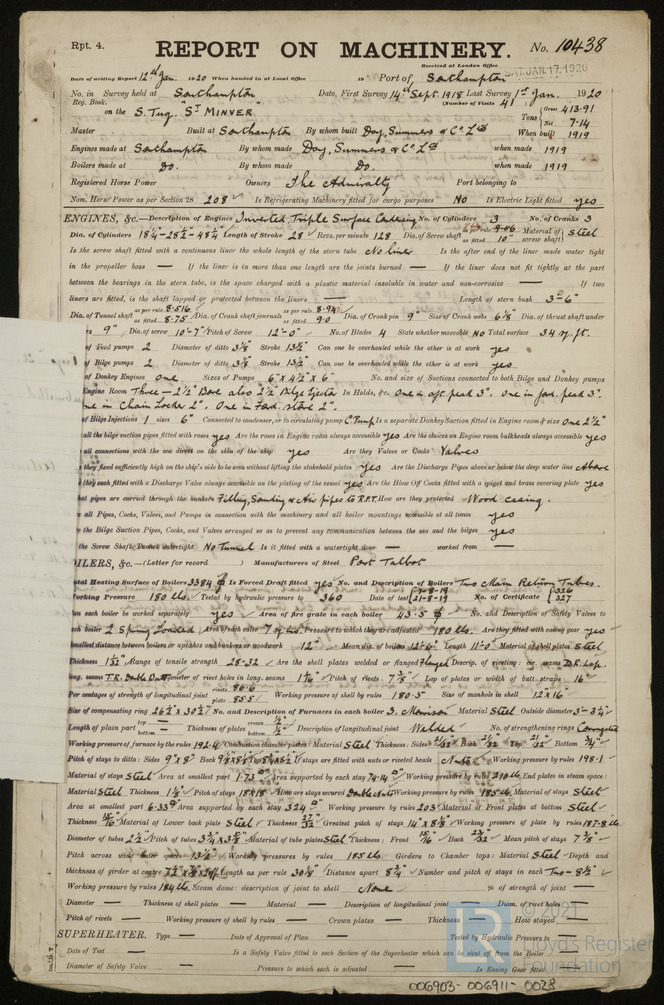 Rpt. 4.
REPORT ON MACHINERY.
No. 10438
Received at London Office
SAT. JAN. 17. 1920
Date of writing Report 12th Jan. 1920 When handed in at Local Office 19 Port of Southampton
No. in Survey held at Southampton Date, First Survey 14th Sept. 1918 Last Survey 1st Jan. 1920
Reg. Book. (Number of Visits 41
on the S. Tug. "St MINVER" Tons Gross 413.91 Net 7.14
Master Built at Southampton By whom built Day, Summers & Co Ltd When built 1919
Engines made at Southampton By whom made Day, Summers & Co Ltd when made 1919
Boilers made at Do. By whom made Do. when made 1919
Registered Horse Power Owners The Admiralty Port belonging to
Nom. Horse Power as per Section 28 208 Is Refrigerating Machinery fitted for cargo purposes No Is Electric Light fitted yes
ENGINES, &c.—Description of Engines Inverted Triple Surface Condensing No. of Cylinders 3 No. of Cranks 3
Dia. of Cylinders 18¼-28½-48¼ Length of Stroke 28 Revs. per minute 128 Dia. of Screw shaft as per rule 9.06 as fitted 10" Material of screw shaft Steel
Is the screw shaft fitted with a continuous liner the whole length of the stern tube No liner Is the after end of the liner made water tight
in the propeller boss — If the liner is in more than one length are the joints burned — If the liner does not fit tightly at the part
between the bearings in the stern tube, is the space charged with a plastic material insoluble in water and non-corrosive — If two
liners are fitted, is the shaft lapped or protected between the liners — Length of stern bush 3'-6"
Dia. of Tunnel shaft as per rule 8.516 as fitted 8.75" Dia. of Crank shaft journals as per rule 8.94 as fitted 9.0 Dia. of Crank pin 9" Size of Crank webs 6⅛" Dia. of thrust shaft under
9" Dia. of screw 10'-7" Pitch of Screw 12'-0" No. of Blades 4 State whether moveable No Total surface 34 sq. ft.
of Feed pumps 2 Diameter of ditto 3⅛ Stroke 13½" Can one be overhauled while the other is at work yes
of Bilge pumps 2 Diameter of ditto 3⅛ Stroke 13½" Can one be overhauled while the other is at work yes
of Donkey Engines One Sizes of Pumps 6"x4½"x6" No. and size of Suctions connected to both Bilge and Donkey pumps
Engine Room Three - 2½" Bore also 2½" Bilge Ejector In Holds, &c. One in aft peak 3". One in ford. peak 3".
One in Chain Locker 2". One in Ford. store 2".
of Bilge Injections 1 sizes 6" Connected to condenser, or to circulating pump C. Pump Is a separate Donkey Suction fitted in Engine room & size One 2½"
all the bilge suction pipes fitted with roses yes Are the roses in Engine room always accessible yes Are the sluices on Engine room bulkheads always accessible yes
all connections with the sea direct on the skin of the ship yes Are they Valves or Cocks Valves
they fixed sufficiently high on the ship's side to be seen without lifting the stokehold plates yes Are the Discharge Pipes above or below the deep water line Above
they each fitted with a Discharge Valve always accessible on the plating of the vessel yes Are the Blow Off Cocks fitted with a spigot and brass covering plate yes
hat pipes are carried through the bunkers Filling, Sounding & Air pipes to R.F.T. How are they protected Wood casing.
all Pipes, Cocks, Valves, and Pumps in connection with the machinery and all boiler mountings accessible at all times yes
the Bilge Suction Pipes, Cocks, and Valves arranged so as to prevent any communication between the sea and the bilges yes
the Screw Shaft Tunnel watertight No Tunnel Is it fitted with a watertight door — worked from —
OILERS, &c.—(Letter for record ) Manufacturers of Steel Port Talbot
otal Heating Surface of Boilers 3384 Is Forced Draft fitted yes No. and Description of Boilers Two Main Return Tubes.
Working Pressure 180 lbs. Tested by hydraulic pressure to 360 Date of test 21-8-19 No. of Certificate 326 327
an each boiler be worked separately yes Area of fire grate in each boiler 43.5 No. and Description of Safety Valves to
ach boiler 2 Spring Loaded Area of each valve 7 Pressure to which they are adjusted 180 lbs. Are they fitted with easing gear yes
mallest distance between boilers or uptakes and bunkers or woodwork 12" Mean dia. of boilers 12'-6" Length 11'-0" Material of shell plates Steel
Thickness 1 1/32" Range of tensile strength 28-32 Are the shell plates welded or flanged Flanged Descrip. of riveting: cir. seams D.R. Lap.
long. seams T.R. Double Butt Diameter of rivet holes in long. seams 1 1/16" Pitch of rivets 7⅜" Lap of plates or width of butt straps 16"
Per centages of strength of longitudinal joint rivets 86.6 plate 85.5 Working pressure of shell by rules 180.5 Size of manhole in shell 12x16
Size of compensating ring 26½ x 30½ No. and Description of Furnaces in each boiler 3. Morrison Material Steel Outside diameter 3'-3¼"
Length of plain part top — bottom — Thickness of plates crown ½" bottom ½" Description of longitudinal joint Welded No. of strengthening rings Corrugated
Working pressure of furnace by the rules 192.4 Combustion chamber plates: Material Steel Thickness: Sides 21/32" Back 21/32" Top 21/32" Bottom ¾"
Pitch of stays to ditto: Sides 9"x8" Back If stays are fitted with nuts or riveted heads Nuts Working pressure by rules 198.1
Material of stays Steel Area at smallest part 1.73 Area supported by each stay 74.14 Working pressure by rules 210 lbs End plates in steam space:
Material Steel Thickness 1⅛" Pitch of stays 18x18 How are stays secured Double nuts Working pressure by rules 185 lbs Material of stays Steel
Area at smallest part 6.33 Area supported by each stay 324 Working pressure by rules 203 Material of Front plates at bottom Steel
Thickness 15/16" Material of Lower back plate Steel Thickness 27/32" Greatest pitch of stays 14"x8⅜" Working pressure of plate by rules 187.8 lbs.
Diameter of tubes 2½" Pitch of tubes 3¾x3⅝ Material of tube plates Steel Thickness: Front 15/16" Back 23/32" Mean pitch of stays 7⅜"
Pitch across wide water spaces 13½" Working pressures by rules 185 lbs. Girders to Chamber tops: Material Steel Depth and
thickness of girder at centre Length as per rule 30⅛" Distance apart 8¼" Number and pitch of stays in each Two - 8½"
Working pressure by rules 184 lbs. Steam dome: description of joint to shell None % of strength of joint —
Diameter — Thickness of shell plates — Material — Description of longitudinal joint — Diam. of rivet holes —
Pitch of rivets — Working pressure of shell by rules — Crown plates — Thickness — How stayed —
SUPERHEATER. Type — Date of Approval of Plan — Tested by Hydraulic Pressure to —
Date of Test — Is a Safety Valve fitted to each Section of the Superheater which can be shut off from the Boiler —
Diameter of Safety Valve — Pressure to which each is adjusted — Is Easing Gear fitted —
© 2021
Lloyd's Register
Foundation
006903-006911-0028